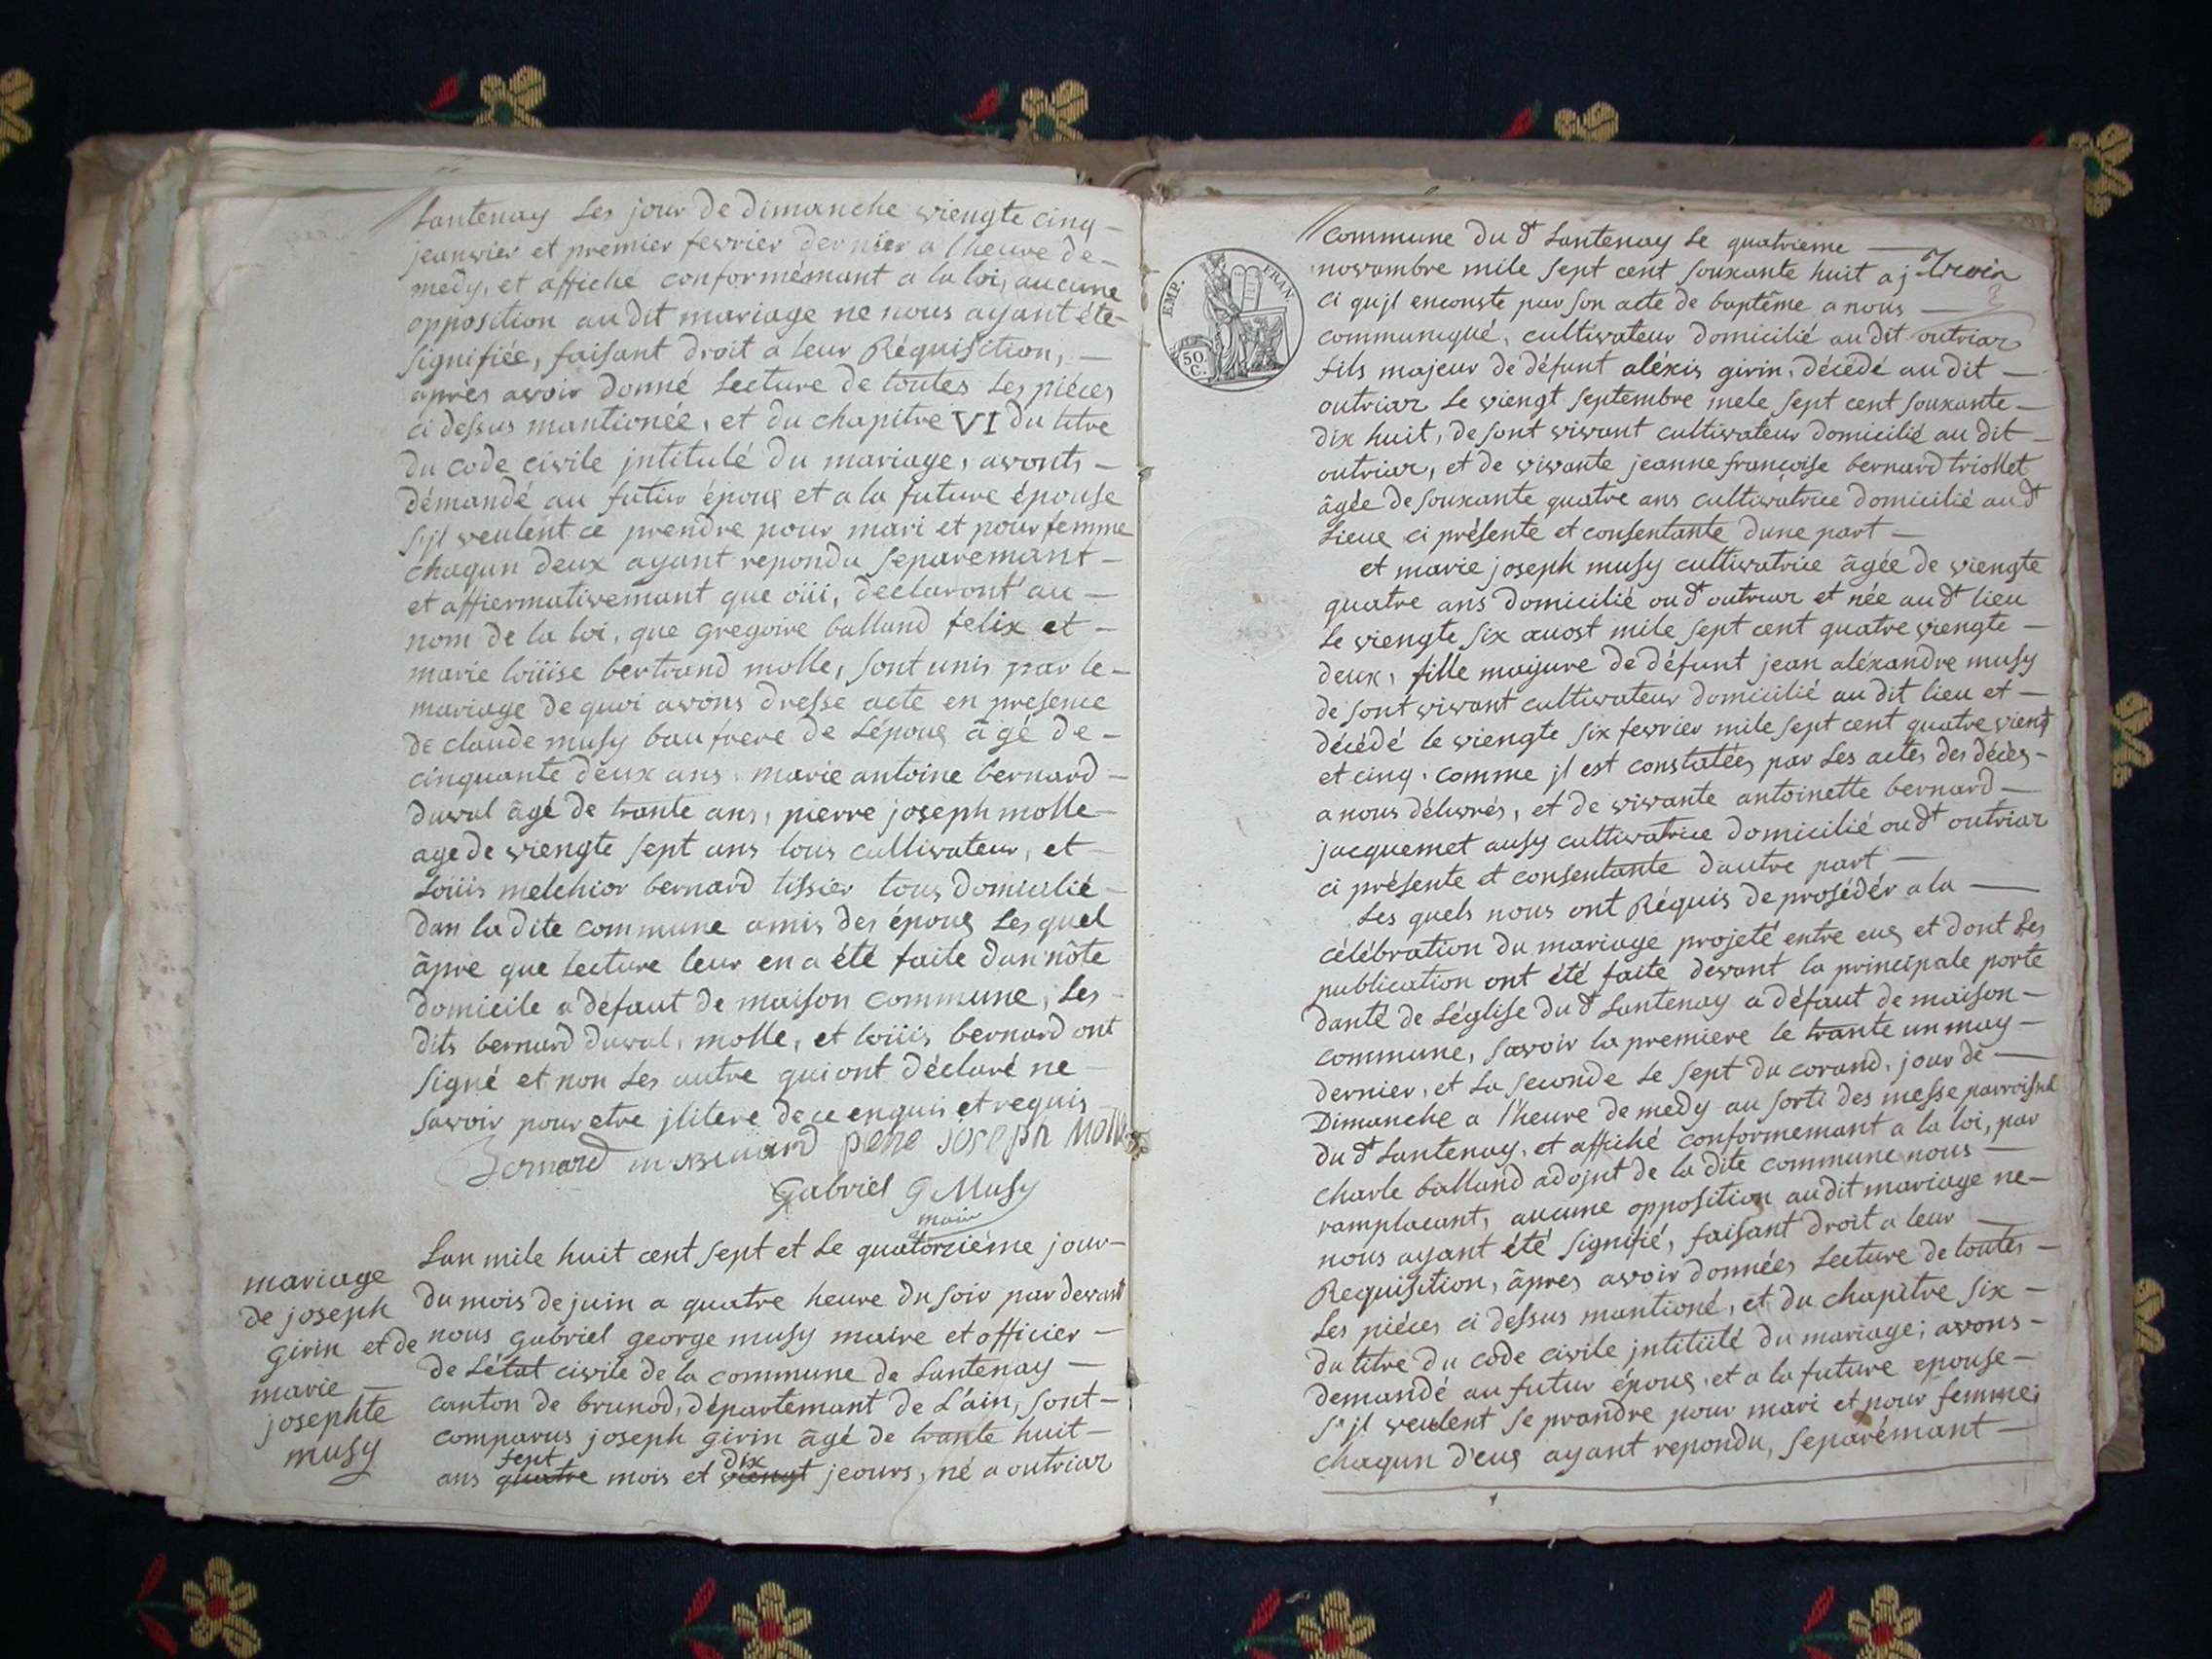 Lantenay Les jour de dimanche viengte cinq -
jeanvier et premier fevrier dernier a lheure de -
medy, et affiché conformémant a la loi, aucune
opposition au dit mariage ne nous ayant été -
signifiée, faisant droit a leur Réquisition, -
après avoir donné Lecture de toutes Les piéces
ci dessus mantionée, et du chapitre VI du titre
du code civile jntitulé du mariage, avonts -
démandé au futur époux et a la future épouse
s'jl veulent ce prendre pour mari et pour femme
chaqun deux ayant repondu separemant -
et affiermativemant que oüi, déclaront au -
nom de la loi, que gregoire balland felix et -
marie loüise bertrand molle, sont unis par le -
mariage de quoi avons dressé acte en presence
de claude musy baufrere de Lépoux âgé de -
cinquante deux ans, marie antoine bernard -
duval âgé de trante ans, pierre joseph molle -
age de viengte sept ans tous cultivateur, et -
Loüis melchior bernard tissier tous domicilié -
dan la dite commune amis des époux Les quel
âpre que Lecture leur en a été faite dan nôte
domicile a défaut de maison commune, Les -
dits bernard duval, molle, et loüis bernard ont
signé et non Les autre qui ont déclaré ne -
savoir pour etre jlitere de ce enquis et requis
Bernard pere joseph Molle
Gabriel G Musy
maire
mariage
de joseph
girin et de
marie -
josephte
musy
Lan mile huit cent sept et Le quatorzième jour -
du mois de juin a quatre heure du soir par devant
nous gabriel george musy maire et officier -
de Létat civile de la commune de Lantenay -
canton de brunod, départemant de L'ain, sont -
comparus joseph girin âgé de trante huit -
sept dix
ans quatre mois et viengt jeours, né a outriaz
EMP. FRAN.
50 C.
commune du dt Lantenay Le quatrieme -
novambre mile sept cent souxante huit aj
ci qujl enconste par son acte de baptême a nous -
communiqué, cultivateur domicilié au dit outriaz
fils majeur de défunt aléxis girin, décédé au dit -
outriaz Le viengt septembre mele sept cent souxante -
dix huit, de sont vivant cultivateur domicilié au dit -
outriaz, et de vivante jeanne françoise bernard triollet
âgée de souxante quatre ans cultivatrice domicilié au dt
Lieux ci présente et consentante dune part -
et marie joseph musy cultivatrice âgée de viengte
quatre ans domicilié au dt outriaz et née au dt lieu
Le viengte six auost mile sept cent quatre viengte -
deux, fille majure de défunt jean aléxandre musy
de sont vivant cultivateur domicilié au dit lieu et -
décédé le viengte six fevrier mile sept cent quatre vient
et cinq, comme jl est constatées par Les actes des décès -
a nous délivrés, et de vivante antoinette bernard -
jacquemet ausy cultivatrice domicilié au dt outriaz
ci présente et consentante dautre part -
Les quels nous ont Réquis de prosédér a la -
célébration du mariage projeté entre eux et dont Les
publication ont été faite devant la principale porte
danté de Léglise du dt Lantenay a défaut de maison -
commune, savoir la premiere le trante un may -
dernier, et La seconde Le sept du corand, jour de -
Dimanche a l'heure de medy au sorti des messe parroissial
du dt Lantenay, et affiché conformemant a la loi, par
charle balland adojnt de la dite commune nous -
ramplacant, aucune opposition au dit mariage ne -
nous ayant été signifié, faisant droit a leur -
Requisition, âpres avoir données Lecture de toutes -
Les piéces ci dessus mantioné, et du chapitre six -
du titre du code civile jntitülé du mariage; avons -
demandé au futur époux, et a la future epouse -
s'jl veulent se prandre pour mari et pour femme;
chaqun d'eux ayant repondu, séparémant -